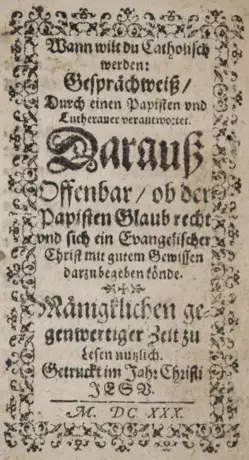 Wann wilt du Catholisch
werden:
Gesprächweiß/
Durch einen Papisten vnd
Lutheraner verantwortet.
Darauß
Offenbar/ ob der
Papisten Glaub recht
vnd sich ein Evangelischer
Christ mit gutem Gewissen
darzu begeben könde.
Mänigklichen ge-
genwertiger Zeit zu
Lesen nutzlich.
Getruckt im Jahr Christi
JESV.
M. DC XXX.